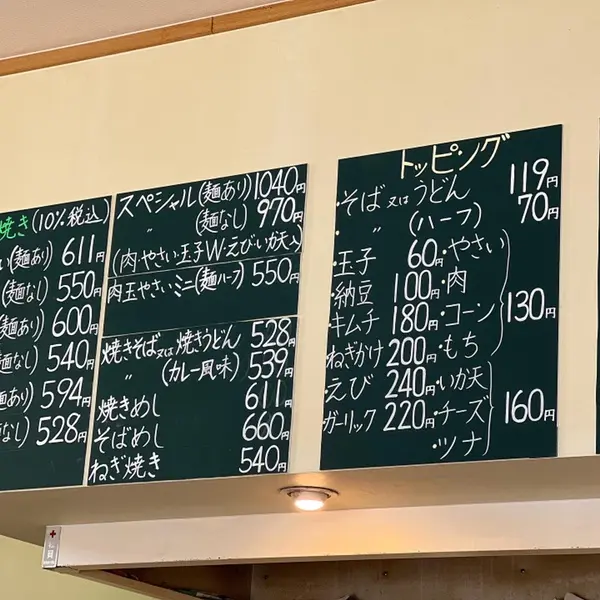 焼き(10%税込)
い(麺あり)611円
(麺なし)550円
(麺あり)600円
(麺なし)540円
(麺あり)594円
(麺なし)528円
スペシャル(麺あり)1040円
〃(麺なし)970円
(肉・やさい・玉子W・えび・いか天入)
肉玉やさい・ミニ(麺ハーフ)550円
焼きそば又は焼きうどん 528円
〃(カレー風味)539円
焼きめし 611円
そばめし 660円
ねぎ焼き 540円
トッピング
・そば又はうどん 119円
・〃(ハーフ)70円
・玉子 60円
・納豆 100円
・キムチ 180円
・ねぎかけ 200円
・えび 240円
・ガーリック 220円
・やさい
・肉
・コーン
・もち
130円
・いか天
・チーズ
・ツナ
160円